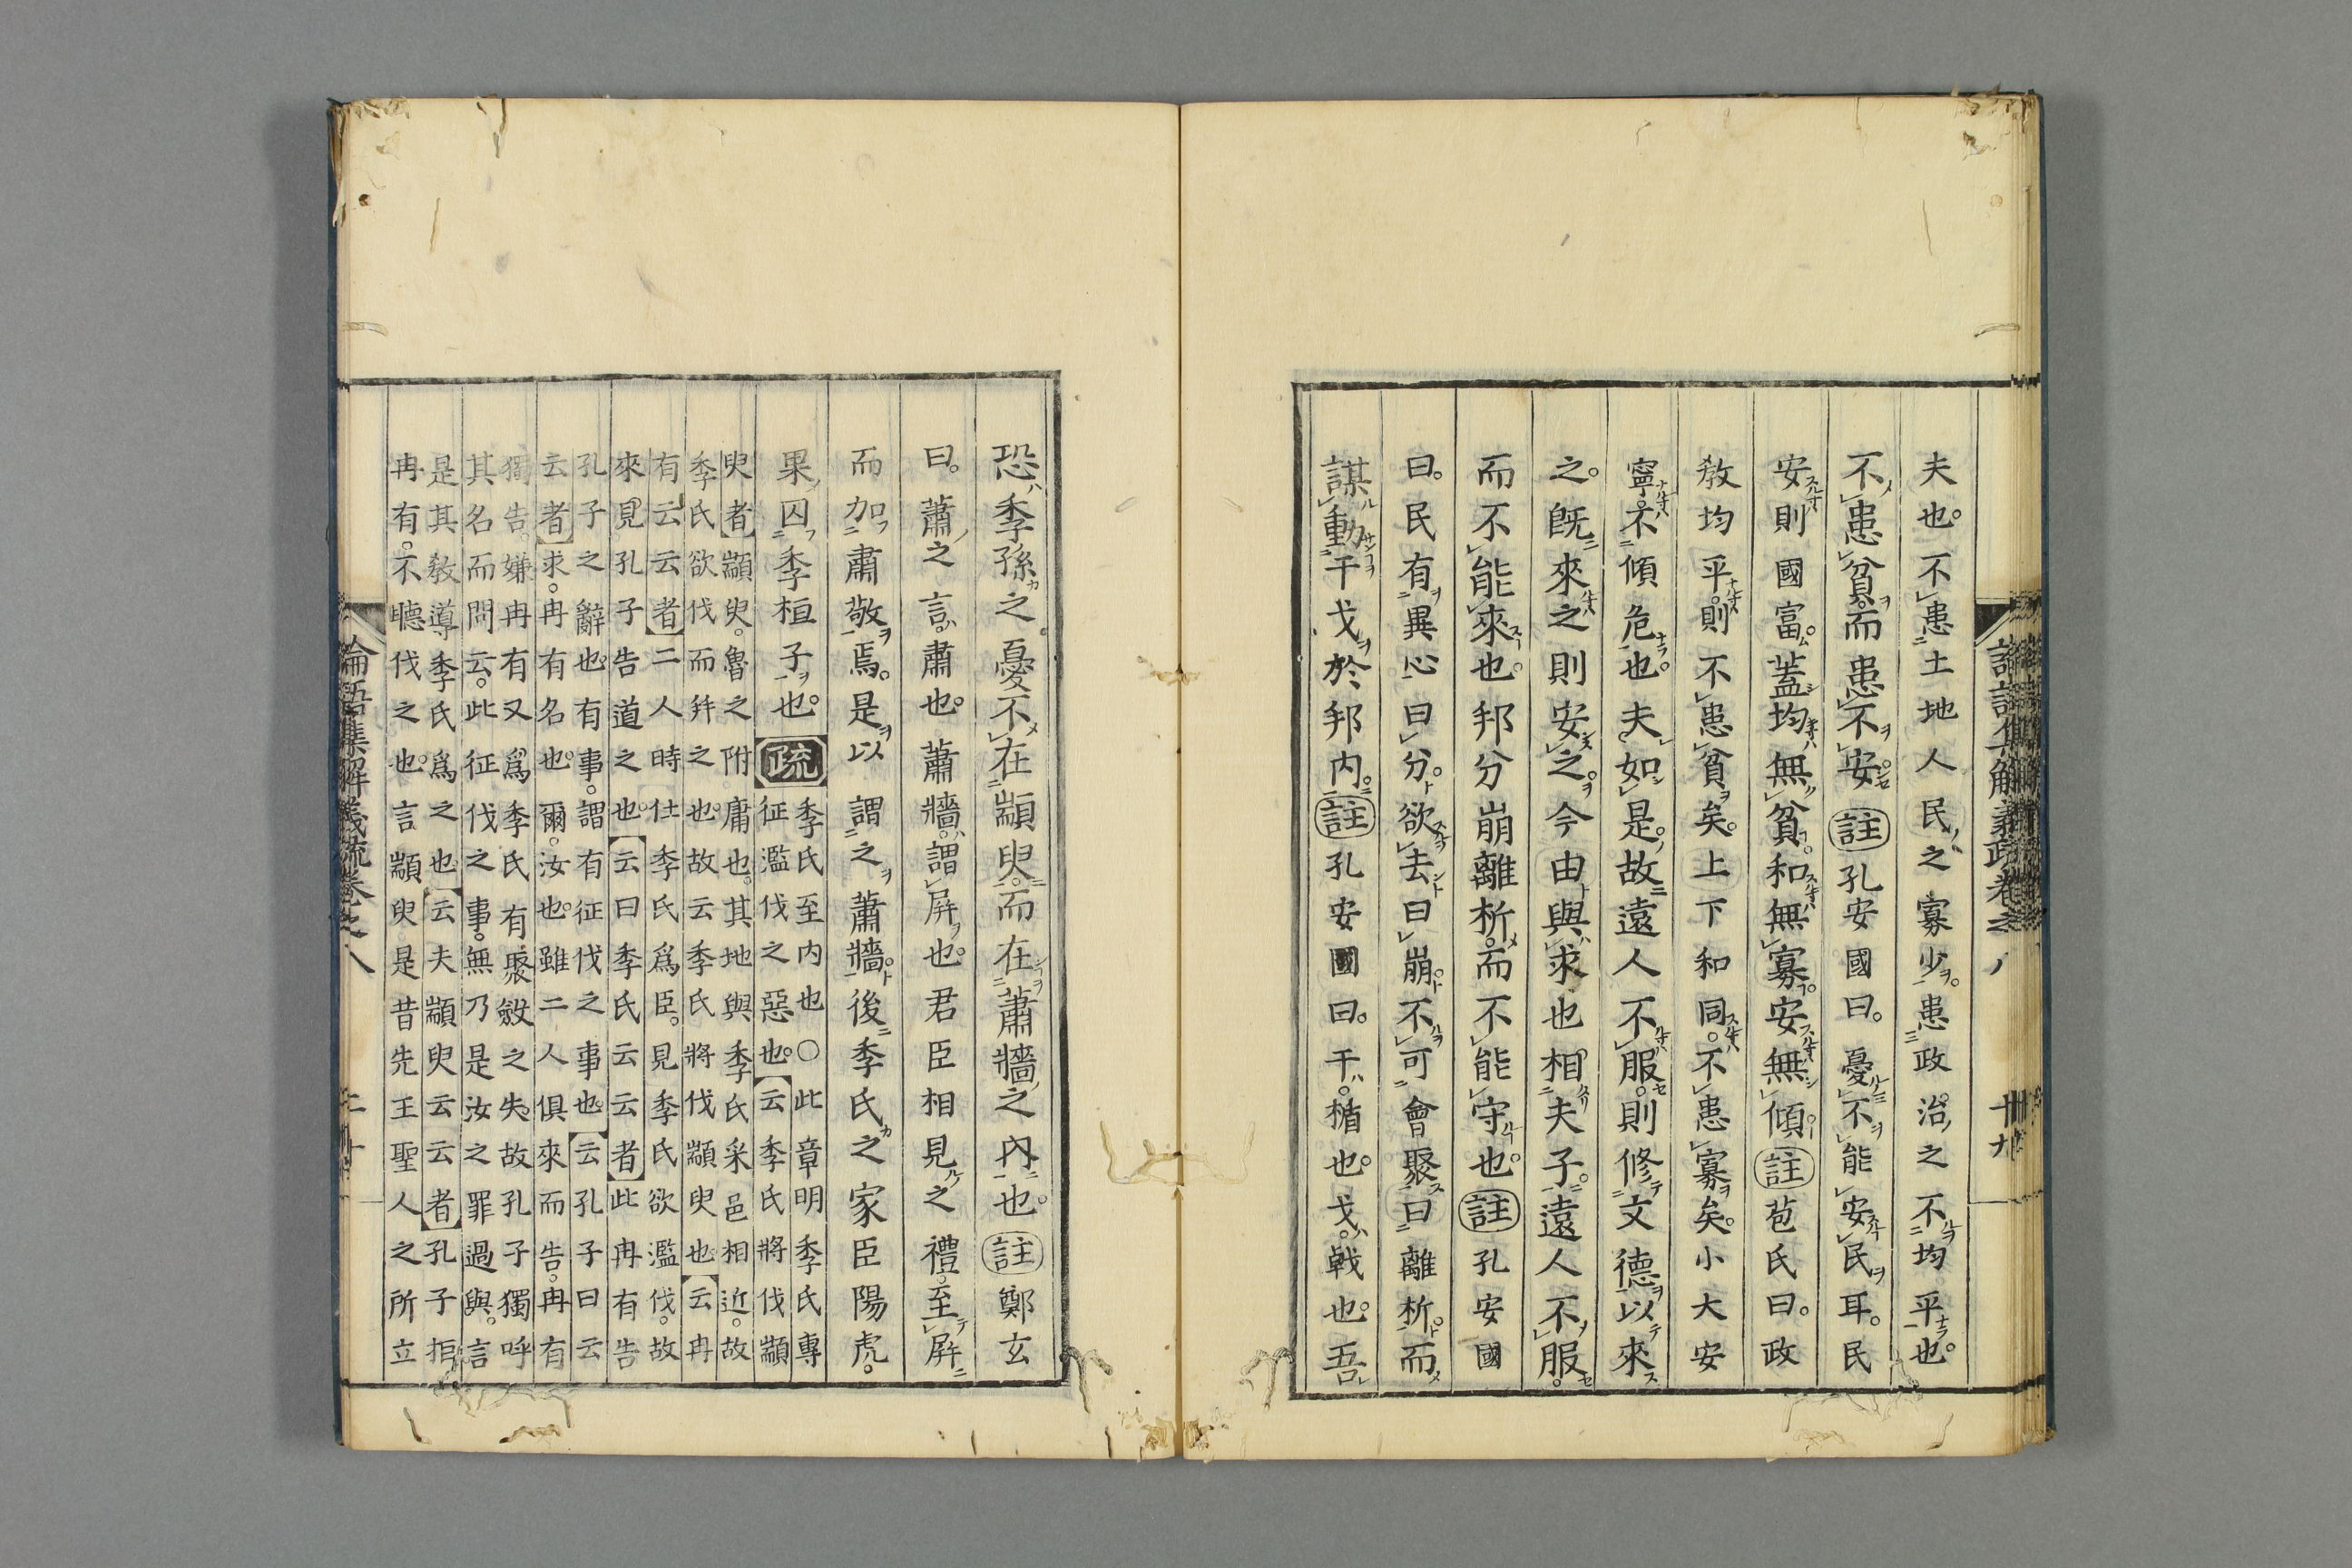 夫也。不患土地人民之寡少。患政治之不均平也。
不患貧。而患不安。註孔安國曰。憂不能安民耳。民
安則國富。蓋均無貧。和無寡。安無傾。註苞氏曰。政
敎均平。則不患貧矣。上下和同。不患寡矣。小大安
寧。不傾危也。夫如是。故遠人不服。則修文德以來
之。旣來之則安之。今由與求也相夫子。遠人不服。
而不能來也。邦分崩離析。而不能守也。註孔安國
曰。民有異心曰分。欲去曰崩。不可會聚曰離析。而
謀動干戈於邦内。註孔安國曰。干。楯也。戈。戟也。吾
恐季孫之憂不在顓臾。而在蕭牆之内也。註鄭玄
曰。蕭之言。肅也。蕭牆。謂屏也。君臣相見之禮。至屏
而加肅敬焉。是以謂之蕭牆。後季氏之家臣陽虎。
果囚季桓子也。疏季氏至内也〇此章明季氏專
征濫伐之惡也。云季氏將伐顓
臾者顓臾。魯之附庸也。其地與季氏采邑相近。故
季氏欲伐而幷之也。故云季氏將伐顓臾也。云冉
有云云者二人時仕季氏爲臣。見季氏欲濫伐。故
來見孔子告道之也。云曰季氏云云者此冉有告
孔子之辭也。有事。謂有征伐之事也。云孔子曰云
云者求。冉有名也。爾。汝也。雖二人俱來而告。冉有
獨告。嫌冉有又爲季氏有聚斂之失。故孔子獨呼
其名而問云。此征伐之事。無乃是汝之罪過與。言
是其敎導季氏爲之也。云夫顓臾云云者孔子拒
冉有。不聽伐之也。言顓臾是昔先王聖人之所立
論語集解義疏卷之八